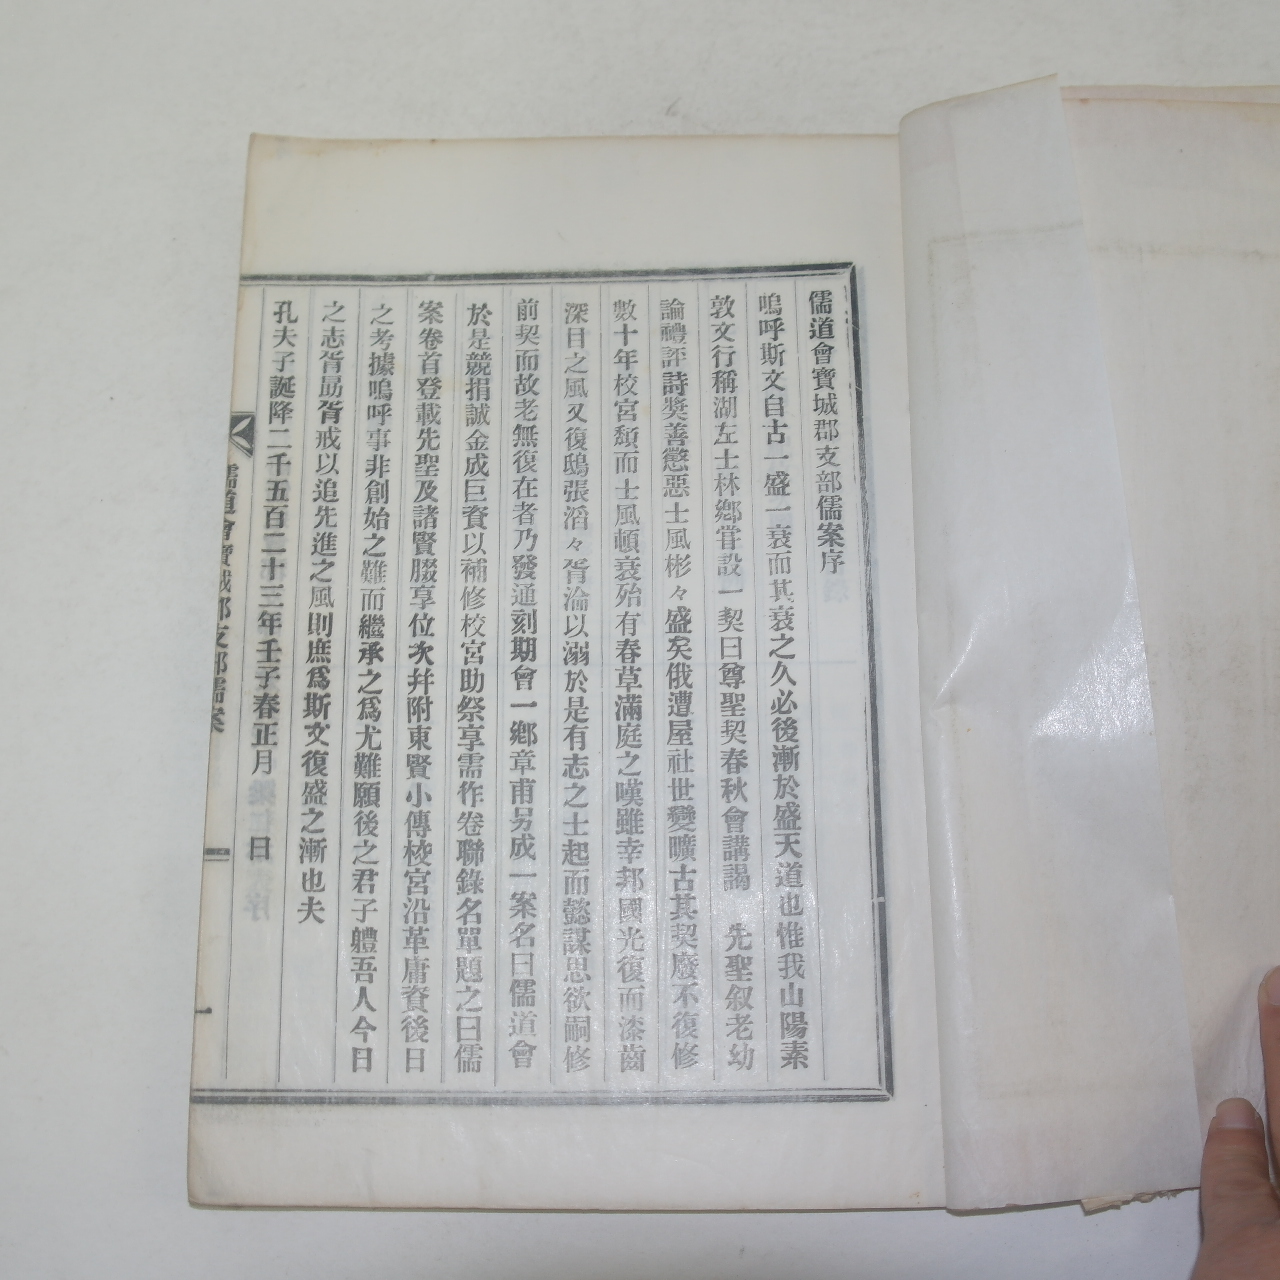 儒道會寶城郡支部儒案序
嗚呼斯文自古一盛一衰而其衰之久必後漸於盛天道也惟我山陽素
敦文行稱湖左士林鄕甞設一契曰尊聖契春秋會講謁 先聖叙老幼
論禮評詩奬善懲惡士風彬々盛矣俄遭屋社世變曠古其契廢不復修
數十年校宮頹而士風頓衰殆有春草滿庭之嘆雖幸邦國光復而漆齒
深目之風又復鴟張滔々胥淪以溺於是有志之士起而懿謀思欲嗣修
前契而故老無復在者乃發通刻期會一鄕章甫另成一案名曰儒道會
於是競捐誠金成巨資以補修校宮助祭享需作卷聯錄名單題之曰儒
案卷首登載先聖及諸賢腏享位次幷附東賢小傳校宮沿革庸資後日
之考據嗚呼事非創始之難而繼承之爲尤難願後之君子軆吾人今日
之志胥勗胥戒以追先進之風則庶爲斯文復盛之漸也夫
孔夫子誕降二千五百二十三年壬子春正月 日
儒道會寶城郡支部儒案
一